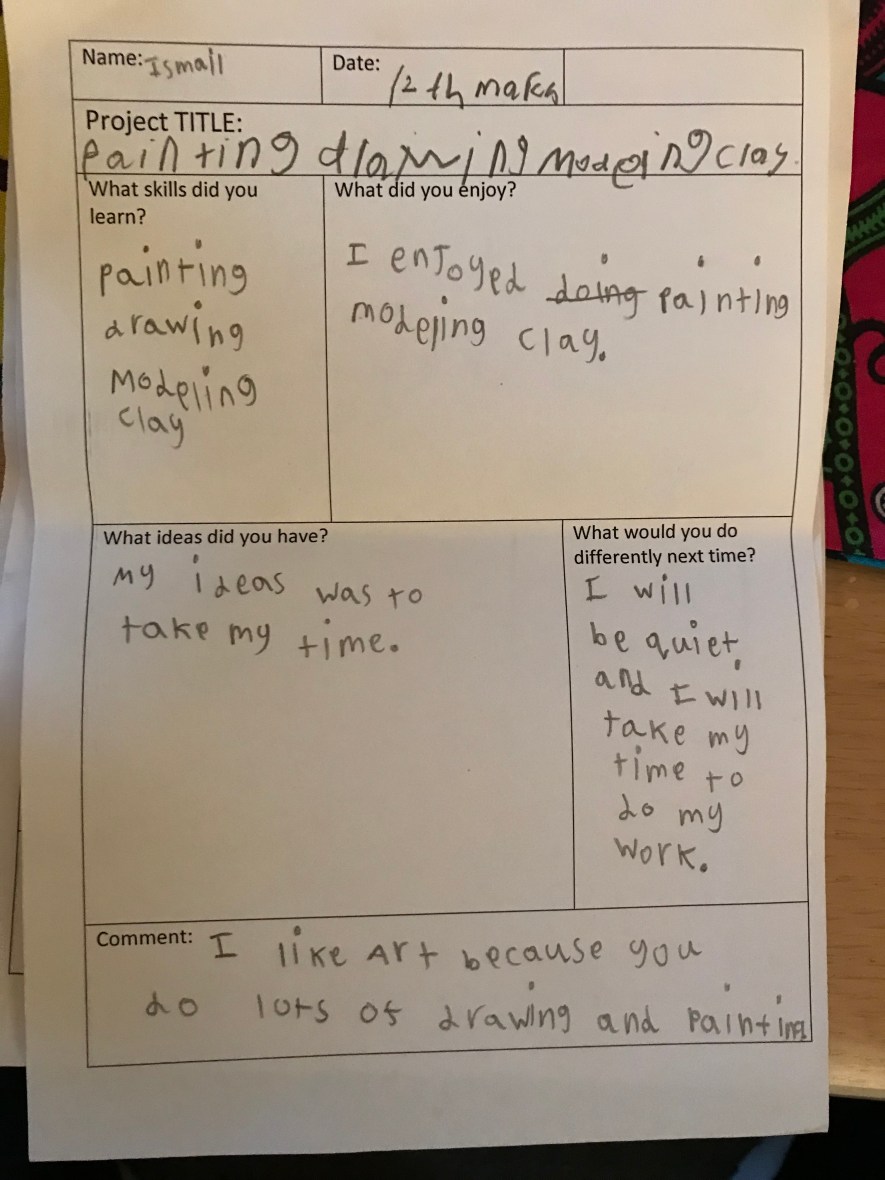 Name: Ismail
Date: 12th march
Project TITLE:
Painting drawing modeling clay.
What skills did you
learn?
painting
drawing
Modeling
clay
What did you enjoy?
I enjoyed doing painting
modeling clay.
What ideas did you have?
My ideas was to
take my time.
What would you do
differently next time?
I will
be quiet
and I will
take my
time to
do my
work.
Comment: I like Art because you
do lots of drawing and painting